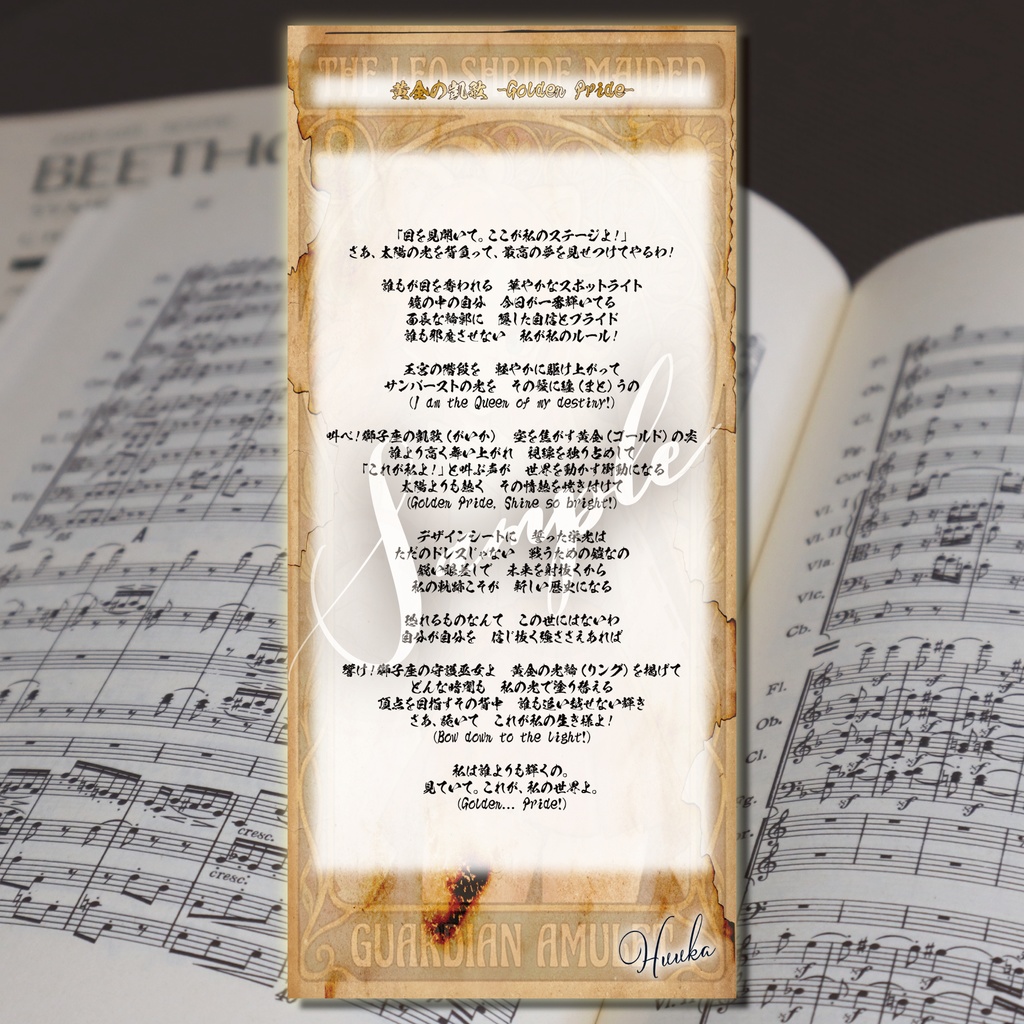 THE LEO SHRINE MAIDEN
黄金の凱歌 -Golden Pride-
「目を見開いて。ここが私のステージよ!」
さあ、太陽の光を背負って、最高の夢を見せつけてやるわ!
誰もが目を奪われる 華やかなスポットライト
鏡の中の自分 今日が一番輝いてる
面長な輪郭に 隠した自信とプライド
誰も邪魔させない 私が私のルール!
王宮の階段を 軽やかに駆け上がって
サンバーストの光を その髪に纏(まと)うの
(I am the Queen of my destiny!)
叫べ!獅子座の凱歌(がいか) 空を焦がす黄金(ゴールド)の炎
誰より高く舞い上がれ 視線を独り占めして
「これが私よ!」と叫ぶ声が 世界を動かす衝動になる
太陽よりも熱く その情熱を焼き付けて
(Golden Pride, Shine so bright!)
デザインシートに 誓った栄光は
ただのドレスじゃない 戦うための鎧なの
鋭い眼差しで 未来を射抜くから
私の軌跡こそが 新しい歴史になる
恐れるものなんて この世にはないわ
自分が自分を 信じ抜く強ささえあれば
響け!獅子座の守護巫女よ 黄金の光輪(リング)を掲げて
どんな暗闇も 私の光で塗り替える
頂点を目指すその背中 誰も追い越せない輝き
さあ、跪いて これが私の生き様よ!
(Bow down to the light!)
私は誰よりも輝くの。
見ていて。これが、私の世界よ。
(Golden... Pride!)
Sample
GUARDIAN AMULET
Huuka
BEETHO
A
cresc.
cresc.
Vl. I
Vl. II
Vla.
Vlc.
Cb.
Fl.
Ob.
Cl.